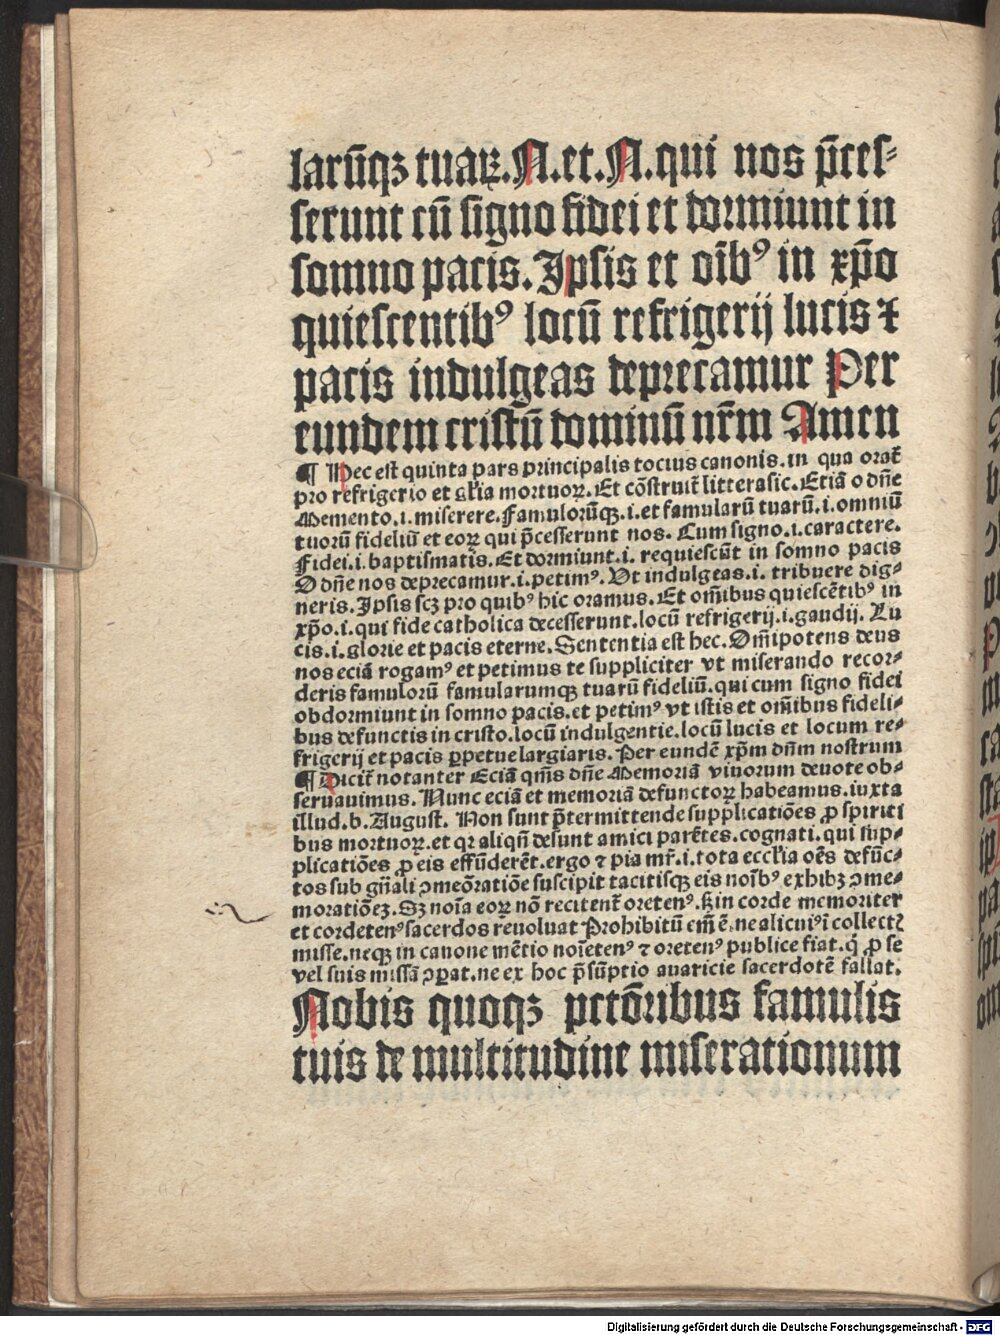 larūqꝫ tuaꝝ. N. et. N. qui nos p̄ces⸗
serunt cū signo fidei et dormiunt in
somno pacis. Ipsis et oībꝰ in xp̄o
quiescentibꝰ locū refrigerij lucis ⁊
pacis indulgeas deprecamur Per
eundem cristū dominū nr̄m Amen
¶ Hec est quinta pars principalis tocius canonis. in qua orat̄
pro refrigerio et gl̄ia mortuoꝝ. Et cōstruit̄ littera sic. Etiā o dn̄e
Memento .i. miserere. Famulorūqꝫ .i. et famularū tuarū .i. omniū
tuorū fideliū et eoꝝ qui p̄cesserunt nos. Cum signo .i. caractere.
Fidei .i. baptismatis. Et dormiunt .i. requiescūt in somno pacis
O dn̄e nos deprecamur .i. petimꝰ. Vt indulgeas .i. tribuere dig⸗
neris. Ipsis scꝫ pro quibꝰ hic oramus. Et om̄ibus quiescētibꝰ in
xp̄o .i. qui fide catholica decesserunt. locū refrigerij .i. gaudij. Lu
cis .i. glorie et pacis eterne. Sententia est hec. Om̄ipotens deus
nos eciā rogamꝰ et petimus te suppliciter vt miserando recor⸗
deris famulorū famularumqꝫ tuarū fideliū. qui cum signo fidei
obdormiunt in somno pacis. et petimꝰ vt istis et om̄ibus fideli⸗
bus defunctis in cristo. locū indulgentie. locū lucis et locum re⸗
frigerij et pacis ꝑpetue largiaris. Per eundē xp̄m dn̄m nostrum
¶ Dicit̄ notanter Eciā qm̄s dn̄e Memoriā viuorum deuote ob⸗
seruauimus. Nunc eciā et memoriā defunctoꝝ habeamus. iuxta
illud .b. August. Non sunt p̄termittende supplicatiōes ꝓ spiriti
bus mortuoꝝ. et qꝛ aliqn̄ desunt amici parētes. cognati. qui sup⸗
plicatiōes ꝓ eis effūderēt. ergo ⁊ pia mr̄ .i. tota eccl̄ia oēs defūc⸗
tos sub gn̄ali ꝯmeōratiōe suscipit tacitisqꝫ eis noībꝰ exhibꝫ ꝯme⸗
moratiōeꝫ. Sꝫ noīa eoꝝ nō recitent̄ oretenꝰ. ꝫ in corde memoriter
et cordetenꝰ sacerdos reuoluat Prohibitū em̄ ē. ne alicuiꝰ ī collectꝭ
misse. neqꝫ in canone mētio noīetenꝰ ⁊ oretenꝰ publice fiat. q̇ ꝓ se
vel suis missā ꝯꝑat. ne ex hoc p̄sūptio auaricie sacerdotē fallat.
Nobis quoqꝫ pctōribus famulis
tuis de multitudine miserationum
Digitalisierung gefördert durch die Deutsche Forschungsgemeinschaft - DFG